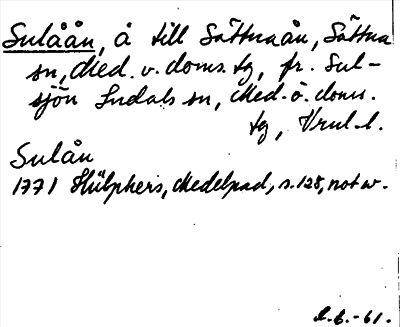 Sulåån, å till Sättnaån, Sättna
sn, Med. v. doms. tg, fr. Sul-
sjön Indals sn, Med. ö. doms.
tg, Vrnl. l.
Sulån
1771 Hülphers, Medelpad, s. 128, not w.
-61.